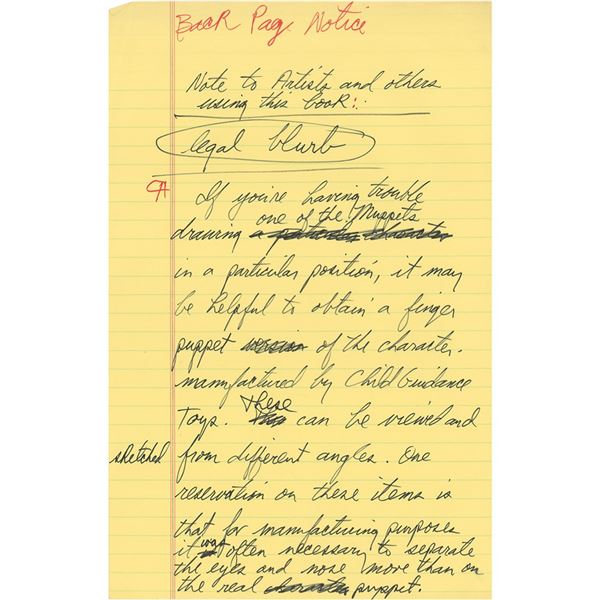 Back Pag. Notice
Note to Artists and others
using this book:
legal blurb
¶ If you're having trouble
one of the Muppets
drawing a particular character
in a particular position, it may
be helpful to obtain a finger
puppet version of the character.
manufactured by Child Guidance
Toys. These can be viewed and
sketched from different angles. One
reservation on these items is
that for manufacturing purposes
it was often necessary to separate
the eyes and nose more than on
the real character puppet.